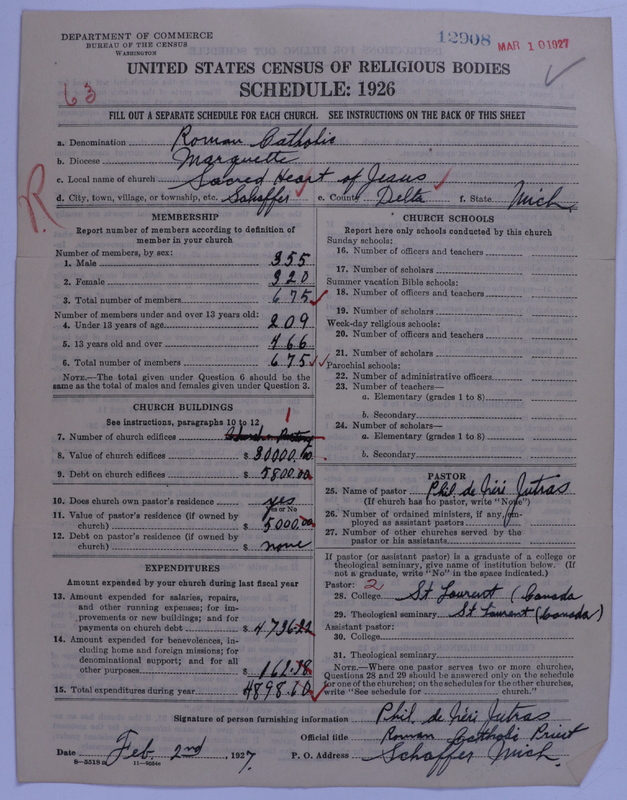 DEPARTMENT OF COMMERCE
BUREAU OF THE CENSUS
WASHINGTON
12908
MAR 10 1927
UNITED STATES CENSUS OF RELIGIOUS BODIES
SCHEDULE: 1926
63
FILL OUT A SEPARATE SCHEDULE FOR EACH CHURCH. SEE INSTRUCTIONS ON THE BACK OF THIS SHEET
a. Denomination Roman Catholic
b. Diocese Marquette
c. Local name of church Sacred Heart of Jesus
d. City, town, village, or township, etc. Schaffer e. County Delta f. State Mich.
R
MEMBERSHIP
Report number of members according to definition of
member in your church
Number of members, by sex:
1. Male 355
2. Female 320
3. Total number of members 675
Number of members under and over 13 years old:
4. Under 13 years of age 209
5. 13 years old and over 466
6. Total number of members 675
NOTE.—The total given under Question 6 should be the
same as the total of males and females given under Question 3.
CHURCH BUILDINGS
See instructions, paragraphs 10 to 12
1
7. Number of church edifices
8. Value of church edifices $ 30000.00
9. Debt on church edifices $ 5800.00
10. Does church own pastor's residence yes
Yes or No
11. Value of pastor's residence (if owned by
church) $ 5000.00
12. Debt on pastor's residence (if owned by
church) $ none
EXPENDITURES
Amount expended by your church during last fiscal year
13. Amount expended for salaries, repairs,
and other running expenses; for im-
provements or new buildings; and for
payments on church debt $ 4736.22
14. Amount expended for benevolences, in-
cluding home and foreign missions; for
denominational support; and for all
other purposes $ 162.38
15. Total expenditures during year 4898.60
CHURCH SCHOOLS
Report here only schools conducted by this church
Sunday schools:
16. Number of officers and teachers
17. Number of scholars
Summer vacation Bible schools:
18. Number of officers and teachers
19. Number of scholars
Week-day religious schools:
20. Number of officers and teachers
21. Number of scholars
Parochial schools:
22. Number of administrative officers
23. Number of teachers—
a. Elementary (grades 1 to 8)
b. Secondary
24. Number of scholars—
a. Elementary (grades 1 to 8)
b. Secondary
PASTOR
25. Name of pastor Phil. de Néri Jutras
(If church has no pastor, write "None")
26. Number of ordained ministers, if any, em-
ployed as assistant pastors
27. Number of other churches served by the
pastor or his assistants
If pastor (or assistant pastor) is a graduate of a college or
theological seminary, give name of institution below. (If
not a graduate, write "No" in the space indicated.)
Pastor: 2
28. College St Laurent (Canada
29. Theological seminary St Laurent (Canada)
Assistant pastor:
30. College
31. Theological seminary
NOTE.—Where one pastor serves two or more churches,
Questions 28 and 29 should be answered only on the schedule
for one of the churches; on the schedules for the other churches,
write "See schedule for church."
Signature of person furnishing information Phil. de Néri Jutras
Official title Roman Catholic Priest
Date Feb. 2nd, 1927. P. O. Address Schaffer Mich.